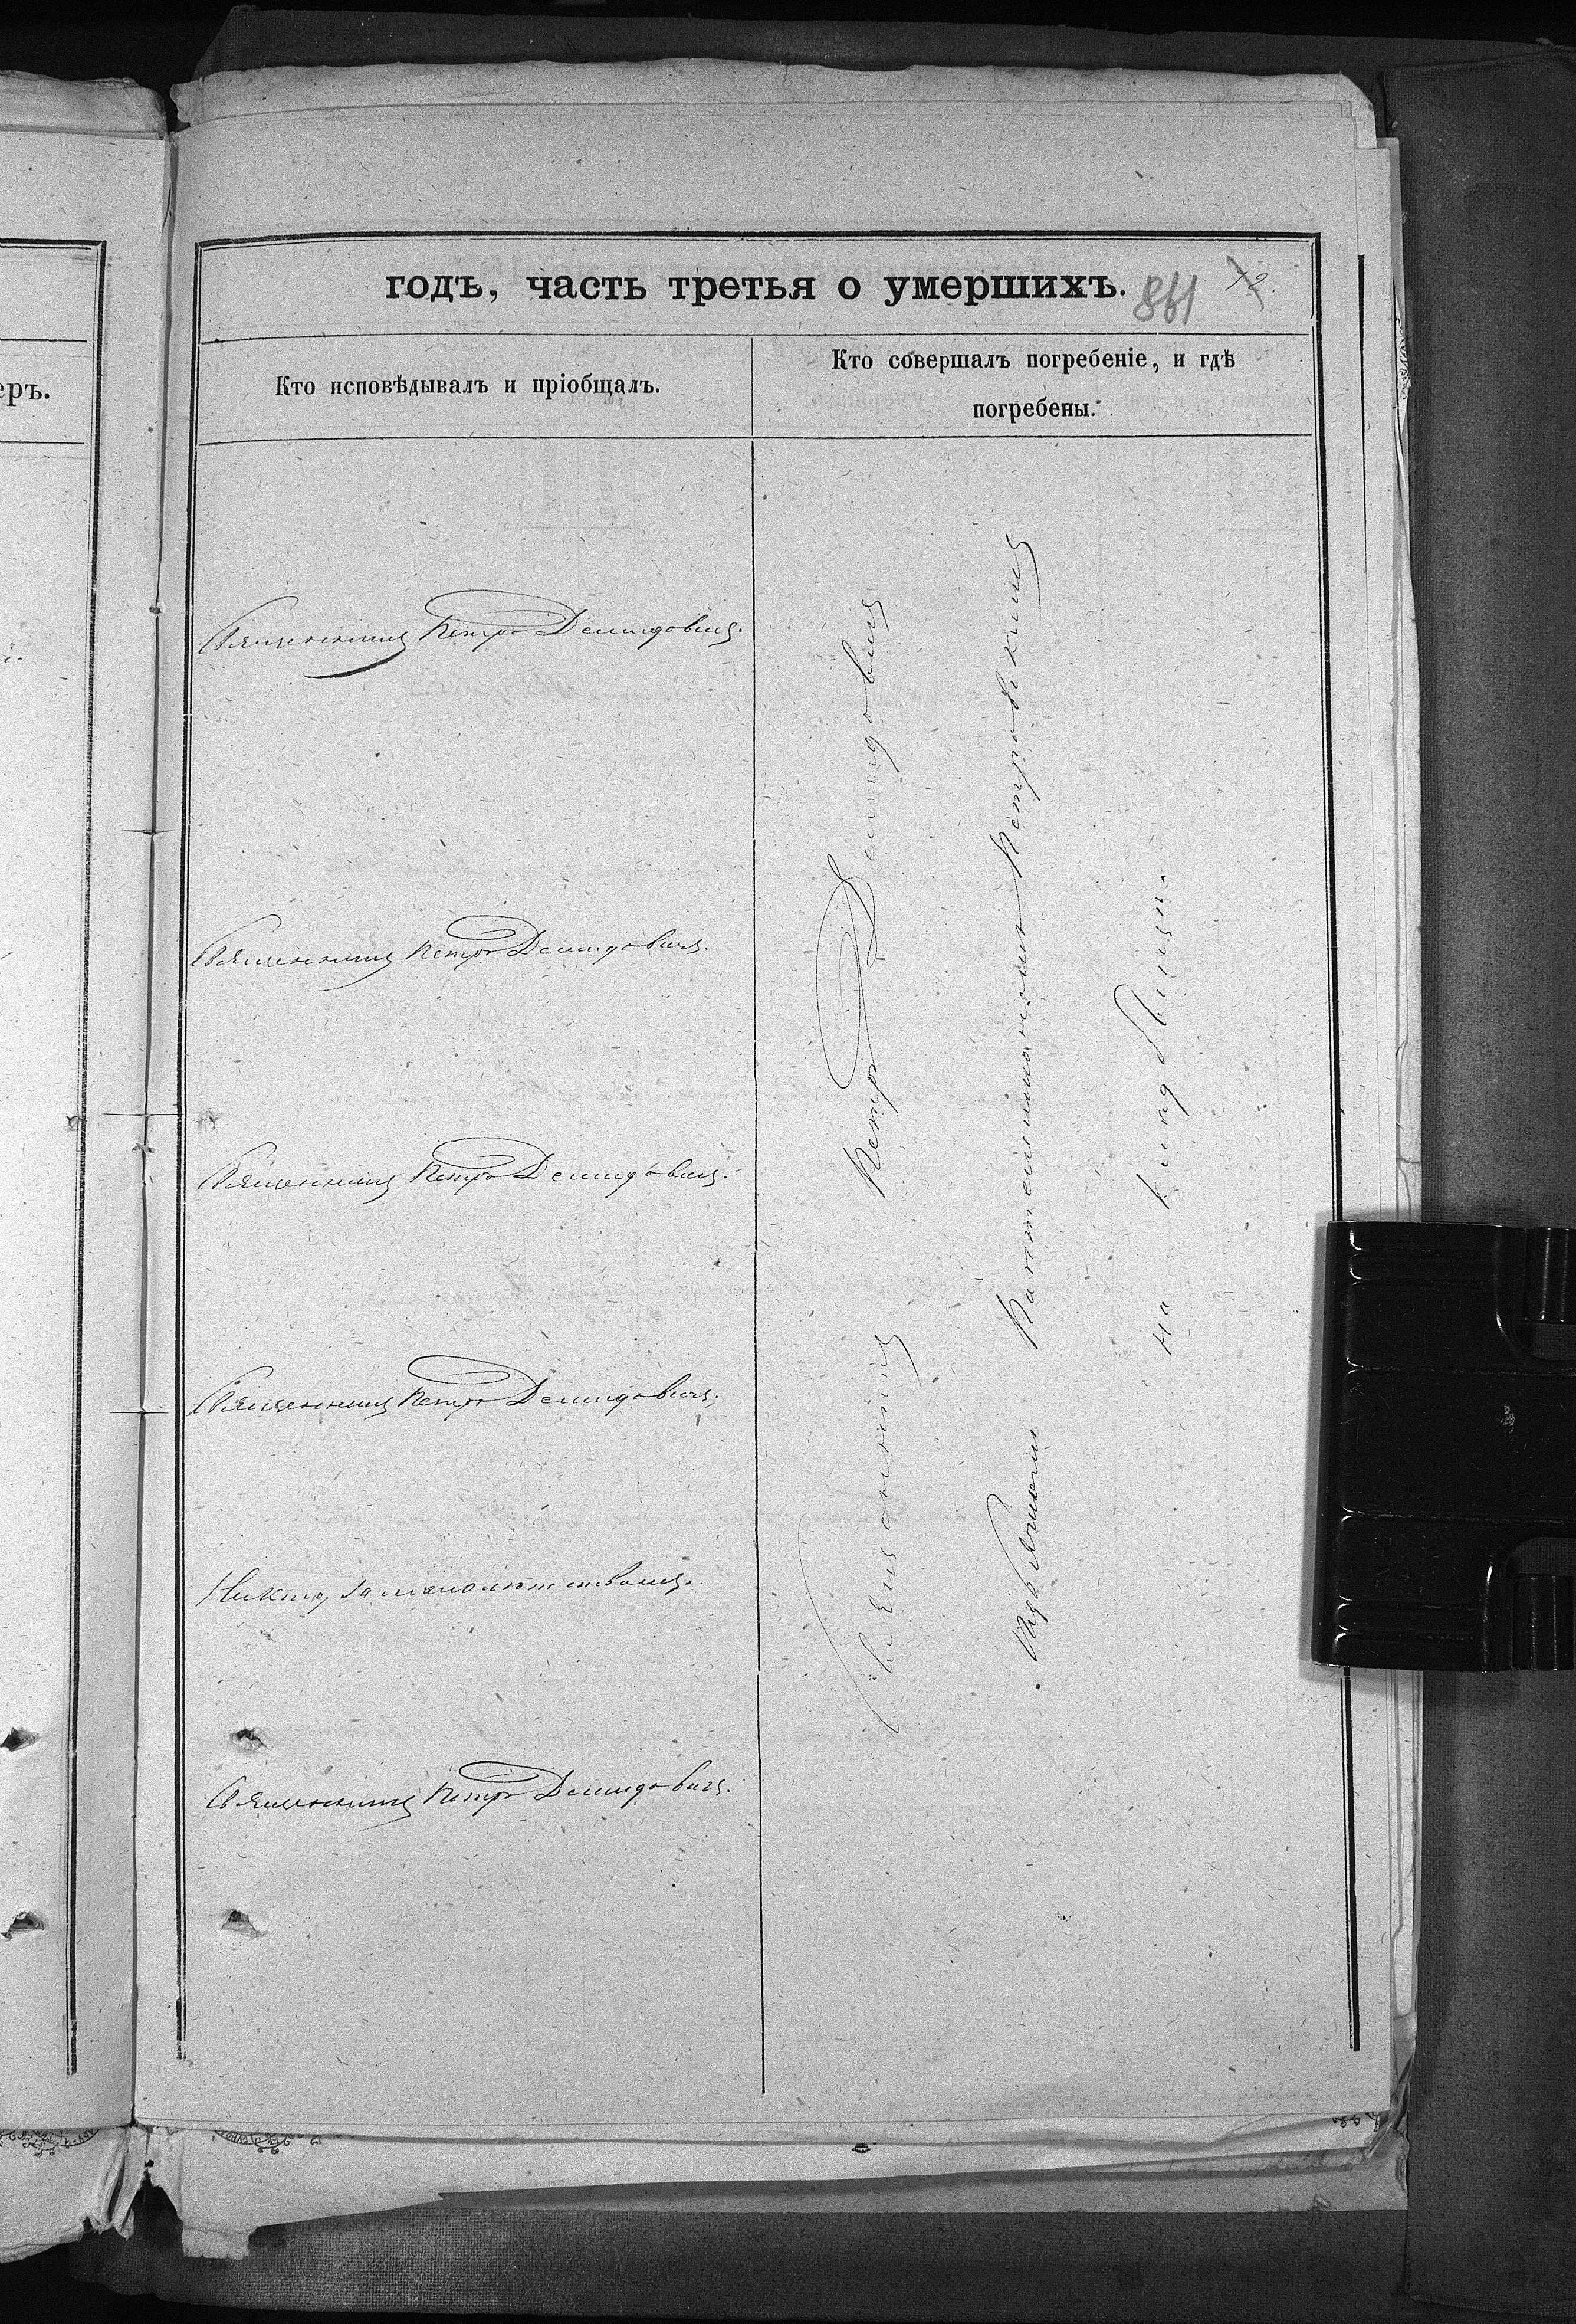 еръ.
годъ, часть третья о умершихъ.
861
Кто исповѣдывалъ и пріобщалъ.
Кто совершалъ погребеніе, и гдѣ
погребены.
Священникъ Петръ Демидовичъ.
Священникъ Петръ Демидовичъ.
Священникъ Петръ Демидовичъ.
Священникъ Петръ Демидовичъ.
Никто, за малолѣтствомъ.
Священникъ Петръ Демидовичъ.
Священникъ Петръ Демидовичъ
Петровскимъ
на кладбищѣ.